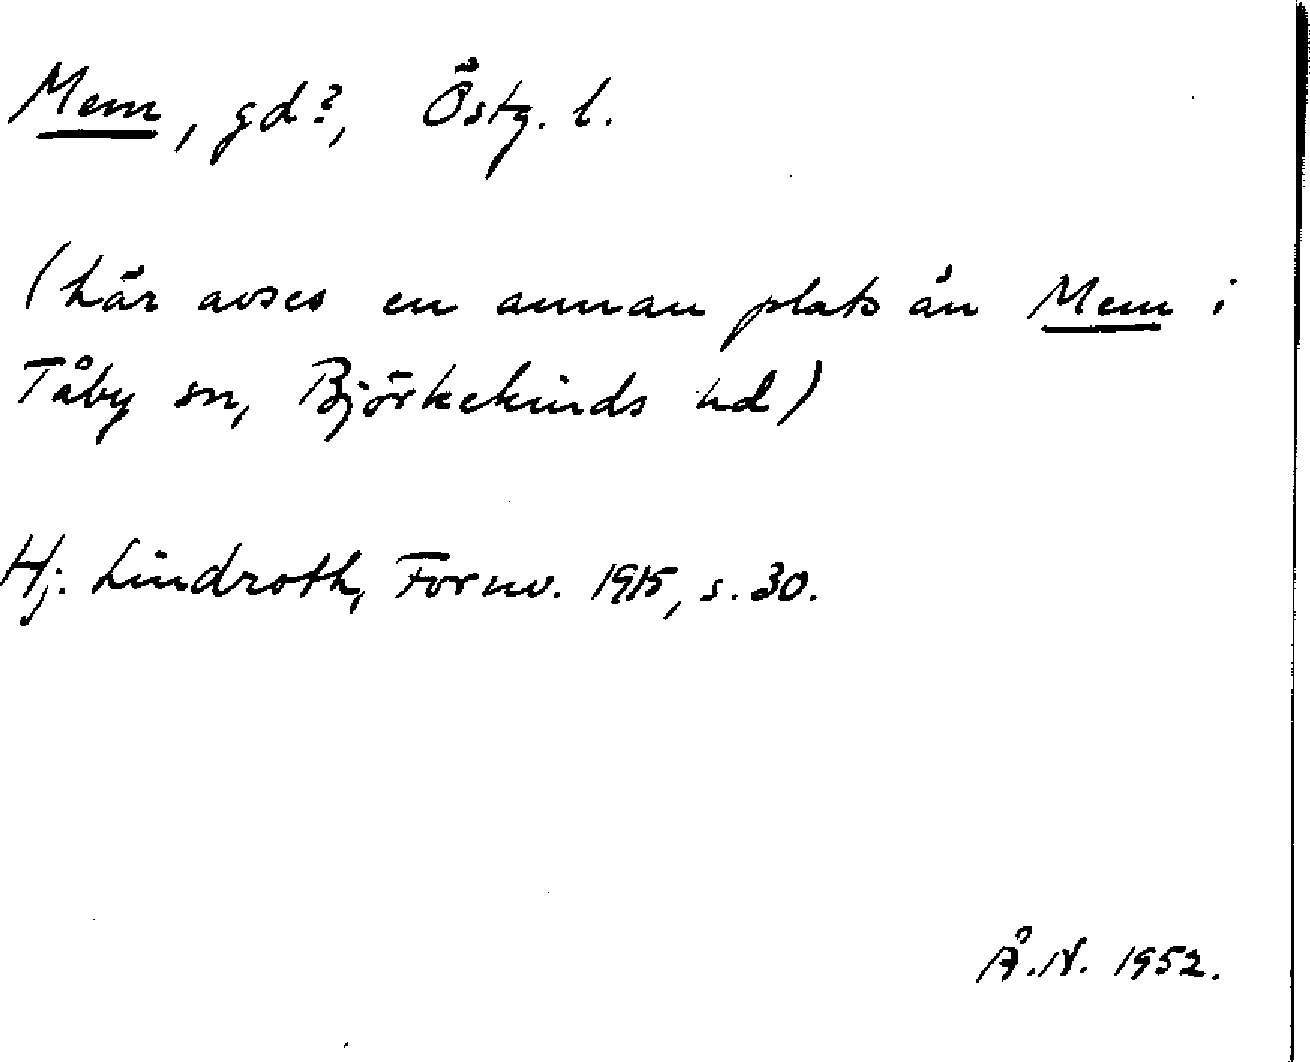 Mem, gd?, Östg. l.
(här avses en annan plats än Mem i
Tåby sn, Björkekinds hd)
Hj. Lindroth, Fornv. 1915, s. 30.
Å.N. 1952.